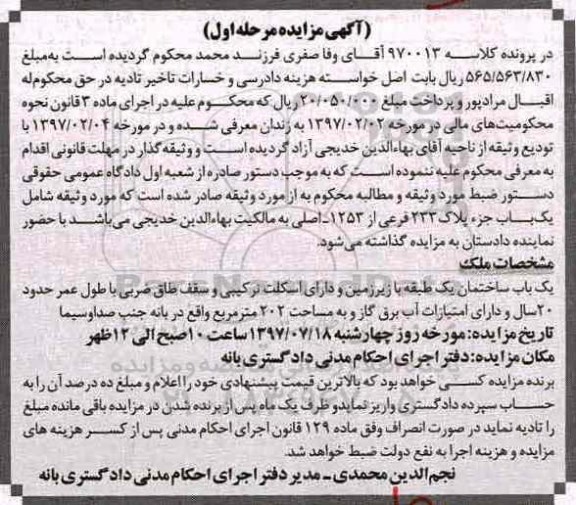 (آگهی مزایده مرحله اول)
در پرونده کلاسه ۹۷۰۰۱۳ آقای وفا صفری فرزند محمد محکوم گردیده است به مبلغ
۵۶۵/۵۶۳/۸۳۰ ریال بابت اصل خواسته هزینه دادرسی و خسارات تاخیر تادیه در حق محکوم له
اقبال مرادپور و پرداخت مبلغ ۲۰/۰۵۰/۰۰۰ ریال که محکوم علیه در اجرای ماده ۳ قانون نحوه
محکومیت‌های مالی در مورخه ۱۳۹۷/۰۲/۰۲ به زندان معرفی شده و در مورخه ۱۳۹۷/۰۲/۰۴ با
تودیع وثیقه از ناحیه آقای بهاءالدین خدیجی آزاد گردیده است و وثیقه گذار در مهلت قانونی اقدام
به معرفی محکوم علیه ننموده است که به موجب دستور صادره از شعبه اول دادگاه عمومی حقوقی
دستور ضبط مورد وثیقه و مطالبه محکوم به از مورد وثیقه صادر شده است که مورد وثیقه شامل
یک باب جزء پلاک ۲۳۳ فرعی از ۱۲۵۳-اصلی به مالکیت بهاءالدین خدیجی می‌باشد با حضور
نماینده دادستان به مزایده گذاشته می‌شود.
مشخصات ملک
یک باب ساختمان یک طبقه با زیرزمین و دارای اسکلت ترکیبی و سقف طاق ضربی با طول عمر حدود
۲۰سال و دارای امتیازات آب برق گاز و به مساحت ۲۰۲ مترمربع واقع در بانه جنب صداوسیما
تاریخ مزایده: مورخه روز چهارشنبه ۱۳۹۷/۰۷/۱۸ ساعت ۱۰صبح الی ۱۲ظهر
مکان مزایده: دفتر اجرای احکام مدنی دادگستری بانه
برنده مزایده کسی خواهد بود که بالاترین قیمت پیشنهادی خود را اعلام و مبلغ ده درصد آن را به
حساب سپرده دادگستری واریز نماید و ظرف یک ماه پس از برنده شدن در مزایده باقی مانده مبلغ
را تادیه نماید در صورت انصراف وفق ماده ۱۲۹ قانون اجرای احکام مدنی پس از کسر هزینه های
مزایده و هزینه اجرا به نفع دولت ضبط خواهد شد.
نجم الدین محمدی - مدیر دفتر اجرای احکام مدنی دادگستری بانه